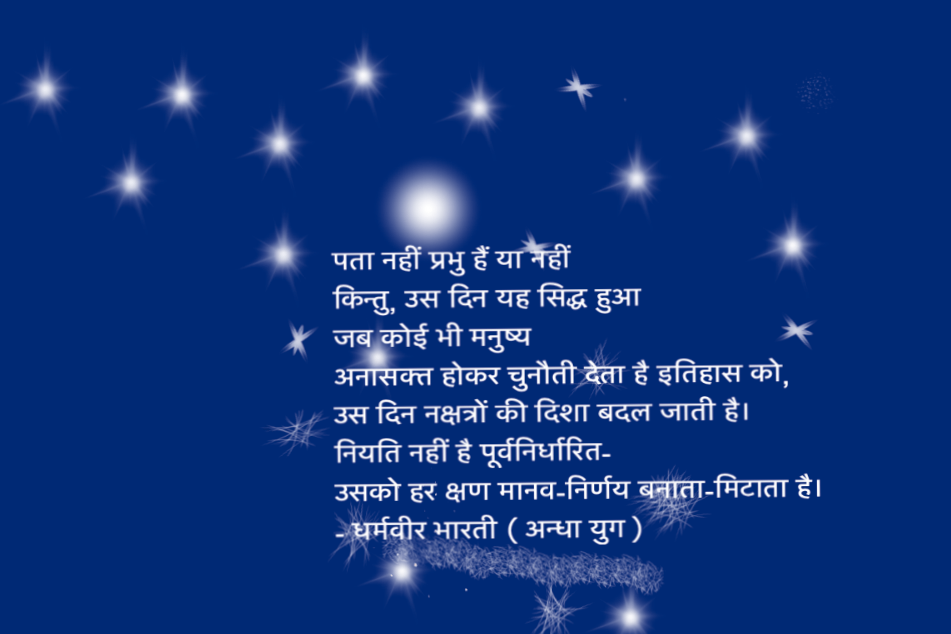 पता नहीं प्रभु हैं या नहीं
किन्तु, उस दिन यह सिद्ध हुआ
जब कोई भी मनुष्य
अनासक्त होकर चुनौती देता है इतिहास को,
उस दिन नक्षत्रों की दिशा बदल जाती है।
नियति नहीं है पूर्वनिर्धारित-
उसको हर क्षण मानव-निर्णय बनाता-मिटाता है।
- धर्मवीर भारती ( अन्धा युग )